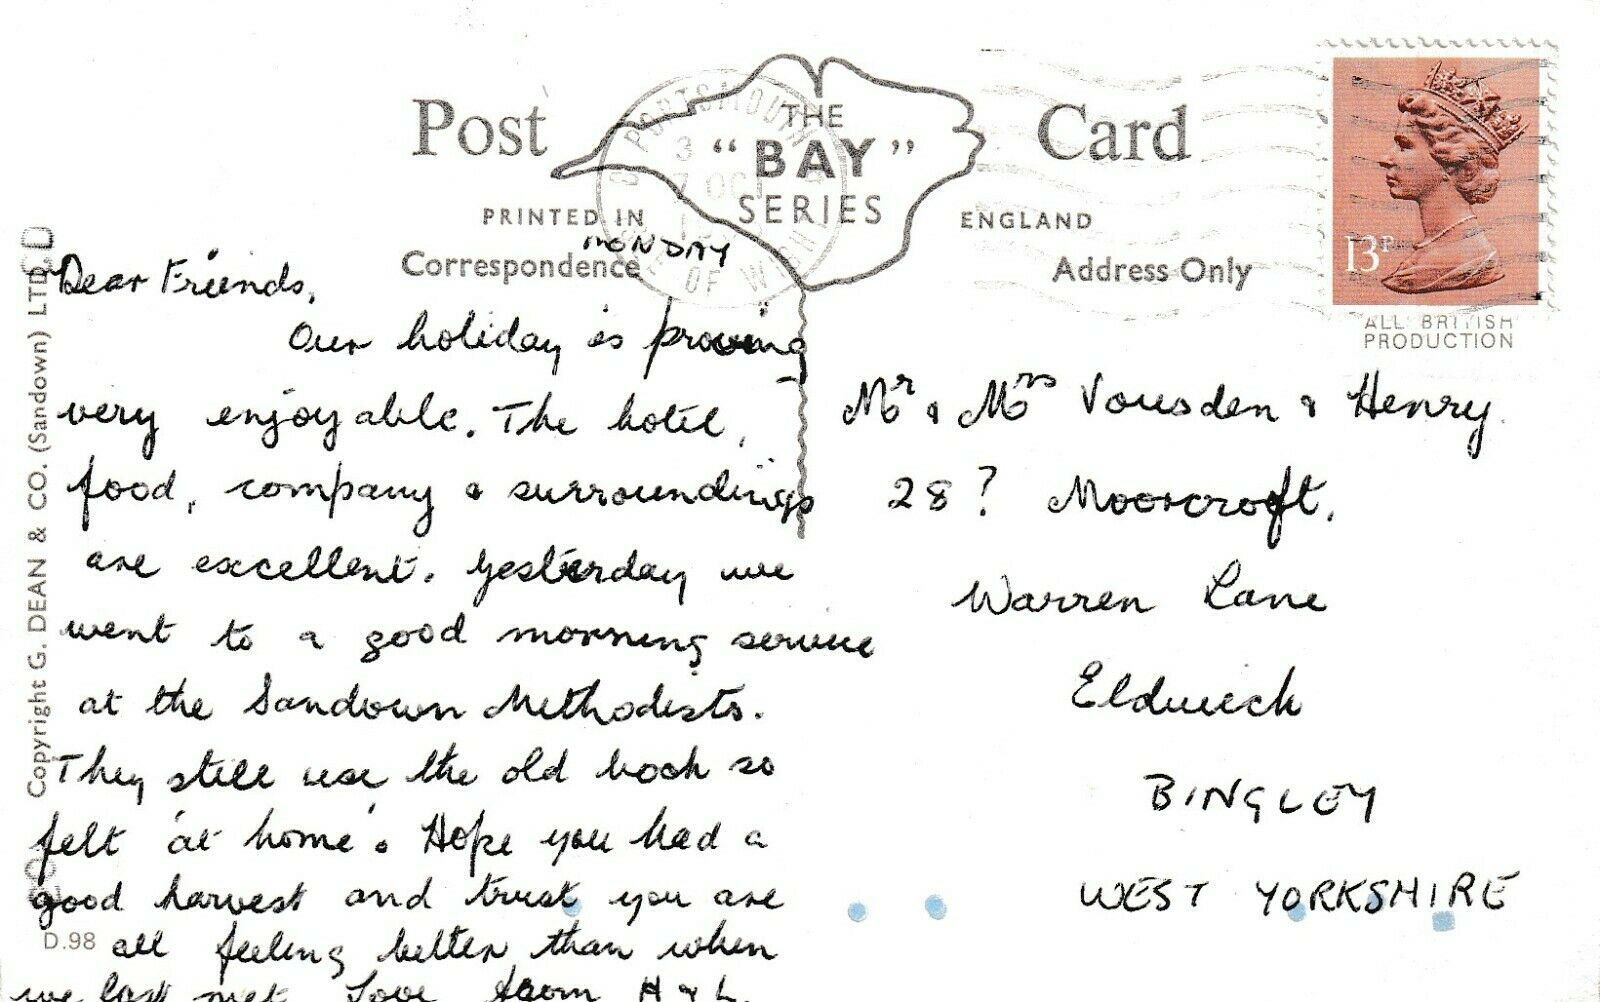 Post Card
THE
"BAY"
SERIES
PRINTED IN ENGLAND
Correspondence
Address Only
PORTSMOUTH
7 OC
OF WIGHT
13P
ALL BRITISH
PRODUCTION
MONDAY
Dear Friends,
Our holiday is proving
very enjoyable. The hotel,
food, company & surroundings
are excellent. Yesterday we
went to a good morning service
at the Sandown Methodists.
They still use the old book so
felt 'at home'. Hope you had a
good harvest and trust you are
all feeling better than when
we last met. Love from H & L.
Mr & Mrs Vousden & Henry.
28? Moorcroft,
Warren Lane
Eldwick
BINGLEY
WEST YORKSHIRE
Copyright G. DEAN & CO. (Sandown) LTD
D.98